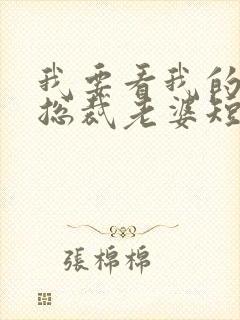 我要看我的
总裁老婆短
張棉棉